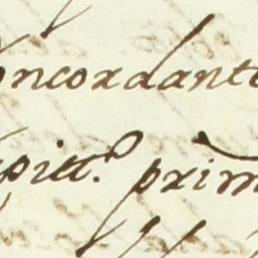 oncordant
pitt.º prim